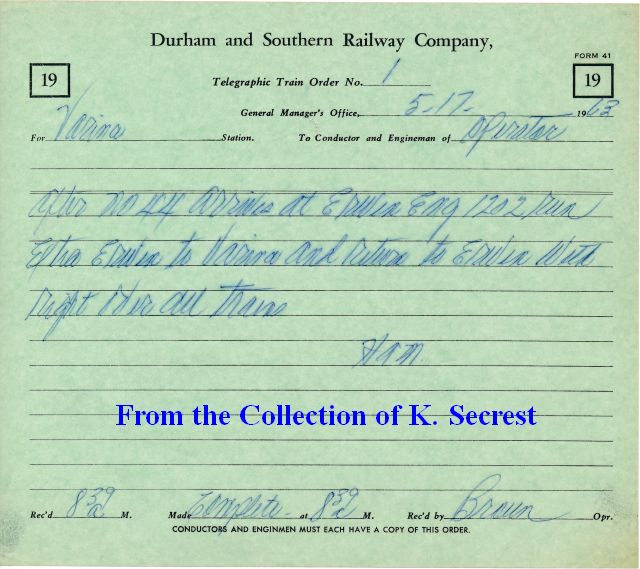 Durham and Southern Railway Company,
FORM 41
19
Telegraphic Train Order No. 1
19
General Manager's Office, 5-17- 1963
For Varina Station. To Conductor and Engineman of Operator
After No 44 arrives at Erwin Eng 1202 run
Extra Erwin to Varina and return to Erwin With
right over all trains
H A M
From the Collection of K. Secrest
Rec'd 8 39 a M. Made Complete - at 8 39 a M. Rec'd by Brown Opr.
CONDUCTORS AND ENGINMEN MUST EACH HAVE A COPY OF THIS ORDER.